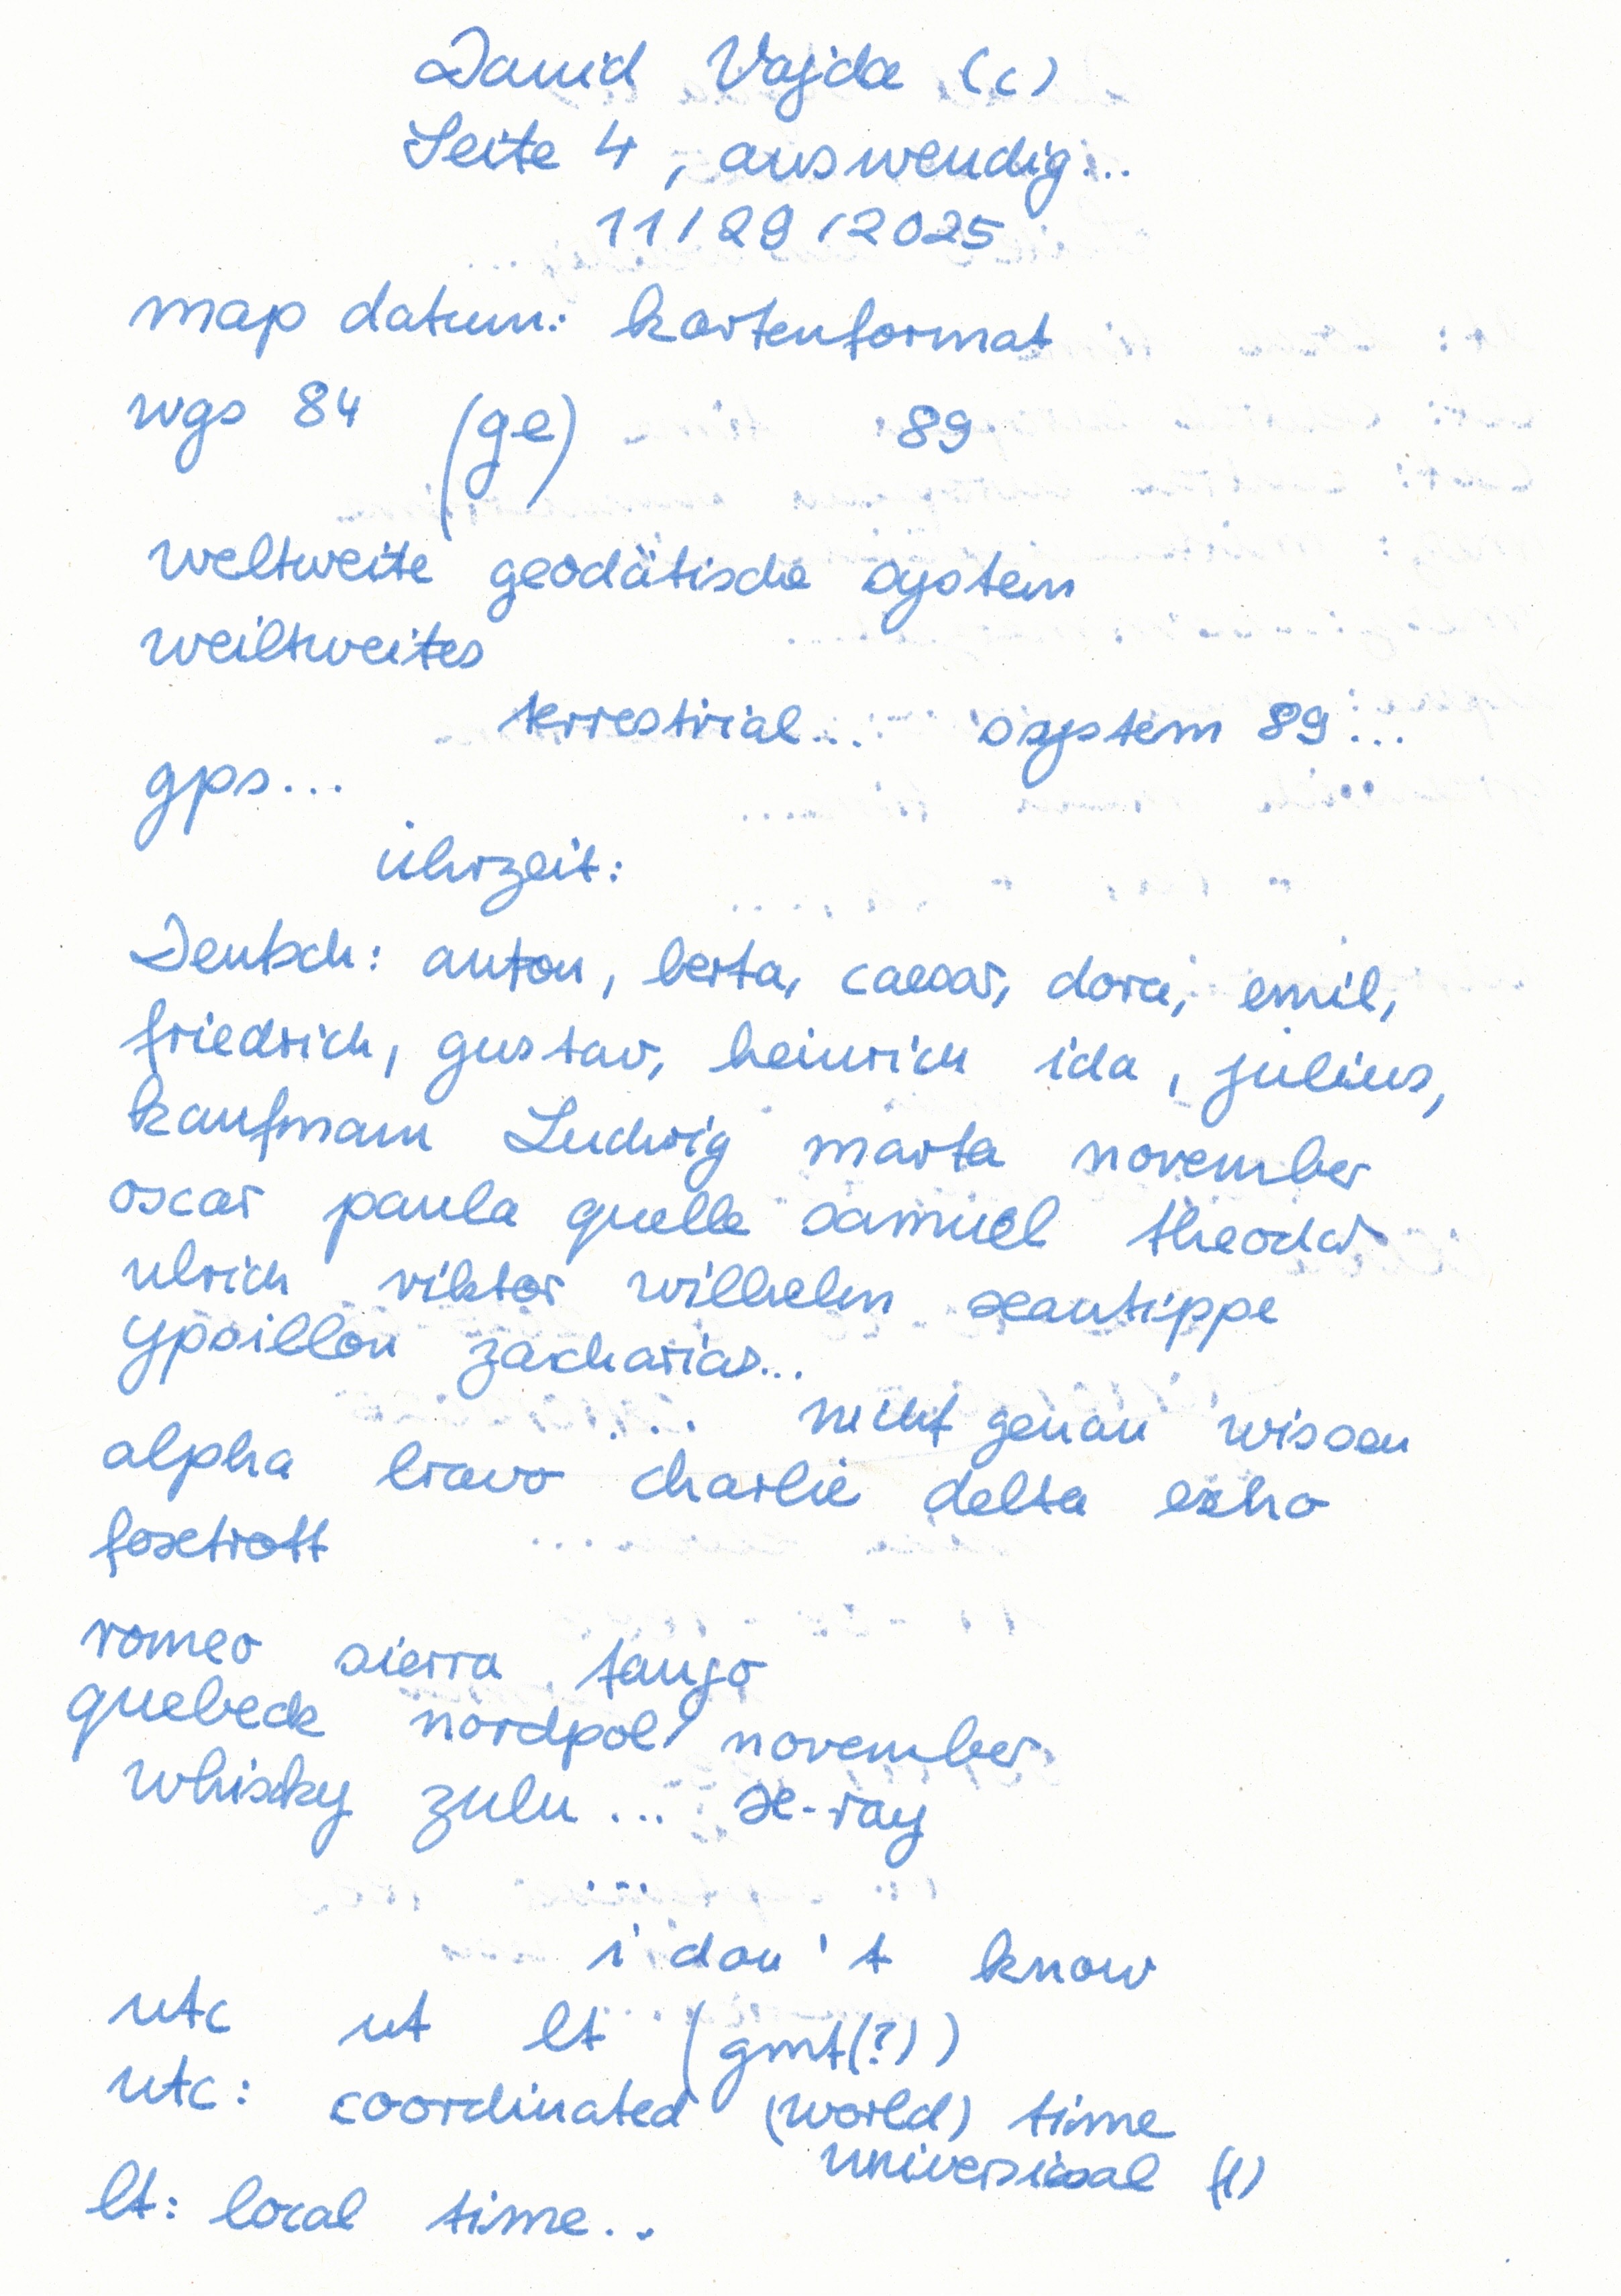 David Vajda (c)
Seite 4, auswendig...
11/29/2025
map datum: kartenformat
wgs 84 (ge) 89
weltweite geodätische system
weiltweites
terrestrial... system 89...
gps...
ührzeit:
Deutsch: anton, berta, caesar, dora, emil,
friedrich, gustav, heinrich ida, julius,
kaufmann Ludwig marta november
oscar paula quelle samuel theodor
ulrich viktor wilhelm xantippe
ypsillon zacharias...
... nicht genau wissen
alpha bravo charlie delta echo
foxtrott
romeo sierra tango
quebeck nordpol/ november
whisky zulu... x-ray
...
i don't know
utc ut lt (gmt(?))
utc: coordinated (world) time
universal (!)
lt: local time..